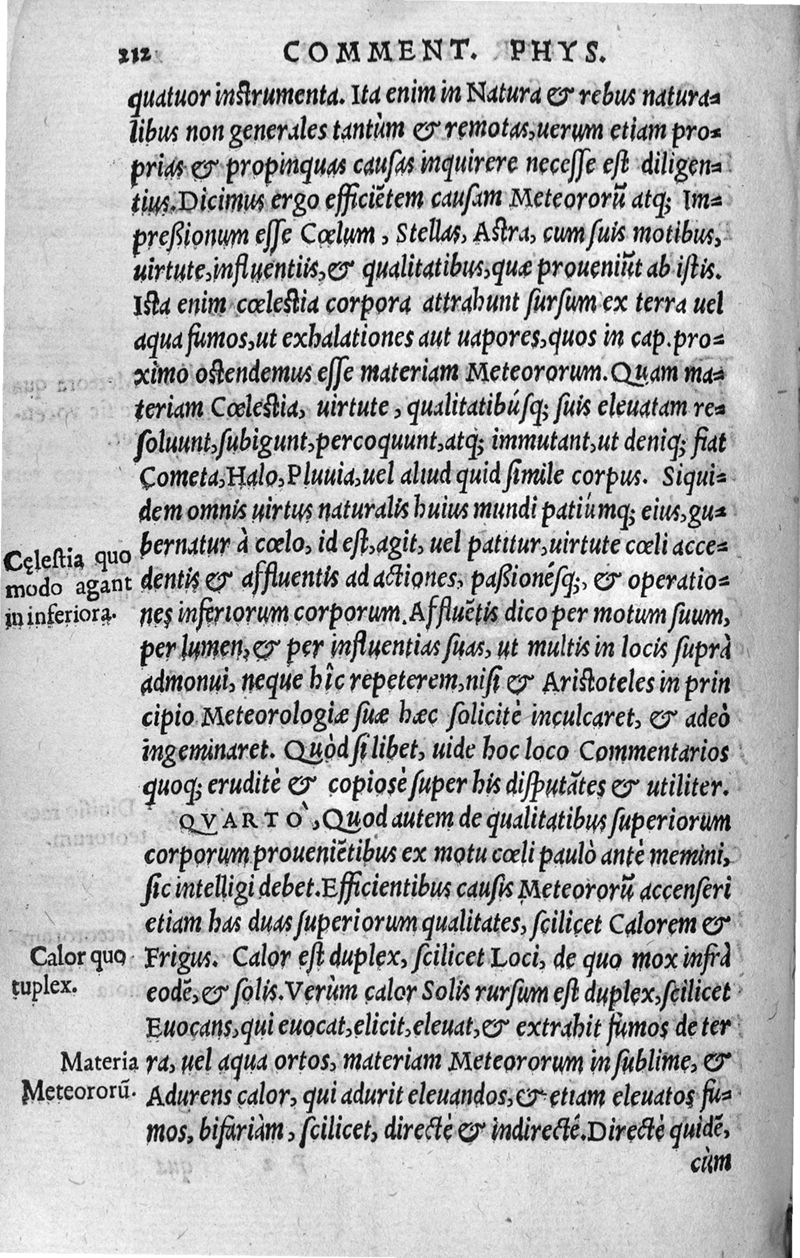 212 COMMENT. PHYS.
quatuor instrumenta. Ita enim in Natura & rebus natura=
libus non generales tantùm & remotas, uerum etiam pro=
prias & propinquas causas inquirere necesse est diligen=
tius. Dicimus ergo efficiẽtem causam Meteororũ atq; Im=
preßionum esse Cœlum, Stellas, Astra, cum suis motibus,
uirtute, influentiis, & qualitatibus, quæ proueniũt ab istis.
Ista enim cœlestia corpora attrahunt sursum ex terra uel
aqua fumos, ut exhalationes aut uapores, quos in cap. pro=
ximo ostendemus esse materiam Meteororum. Quam ma=
teriam Cœlestia, uirtute, qualitatibúsq; suis eleuatam re=
soluunt, subigunt, percoquunt, atq; immutant, ut deniq; fiat
Cometa, Halo, Pluuia, uel aliud quid simile corpus. Siqui=
dem omnis uirtus naturalis huius mundi patiúmq; eius, gu=
Cęlestia quo
modo agant
in inferiora.
bernatur à cœlo, id est, agit, uel patitur, uirtute cœli acce=
dentis & affluentis ad actiones, paßionésq;, & operatio=
nes inferiorum corporum. Affluẽtis dico per motum suum,
per lumen, & per influentias suas, ut multis in locis suprà
admonui, neque hîc repeterem, nisi & Aristoteles in prin
cipio Meteorologiæ suæ hæc solicitè inculcaret, & adeò
ingeminaret. Quòd si libet, uide hoc loco Commentarios
quoq; eruditè & copiosè super his disputãtes & utiliter.
QVARTO`, Quod autem de qualitatibus superiorum
corporum proueniẽtibus ex motu cœli paulò antè memini,
sic intelligi debet. Efficientibus causis Meteororũ accenseri
etiam has duas superiorum qualitates, scilicet Calorem &
Calor quo
tuplex.
Frigus. Calor est duplex, scilicet Loci, de quo mox infrà
eodẽ, & solis. Verùm calor Solis rursum est duplex, scilicet
Euocans, qui euocat, elicit, eleuat, & extrahit fumos de ter
Materia
Meteororũ.
ra, uel aqua ortos, materiam Meteororum in sublime, &
Adurens calor, qui adurit eleuandos, & etiam eleuatos fu=
mos, bifariàm, scilicet, directè & indirectè. Directè quidẽ,
cùm